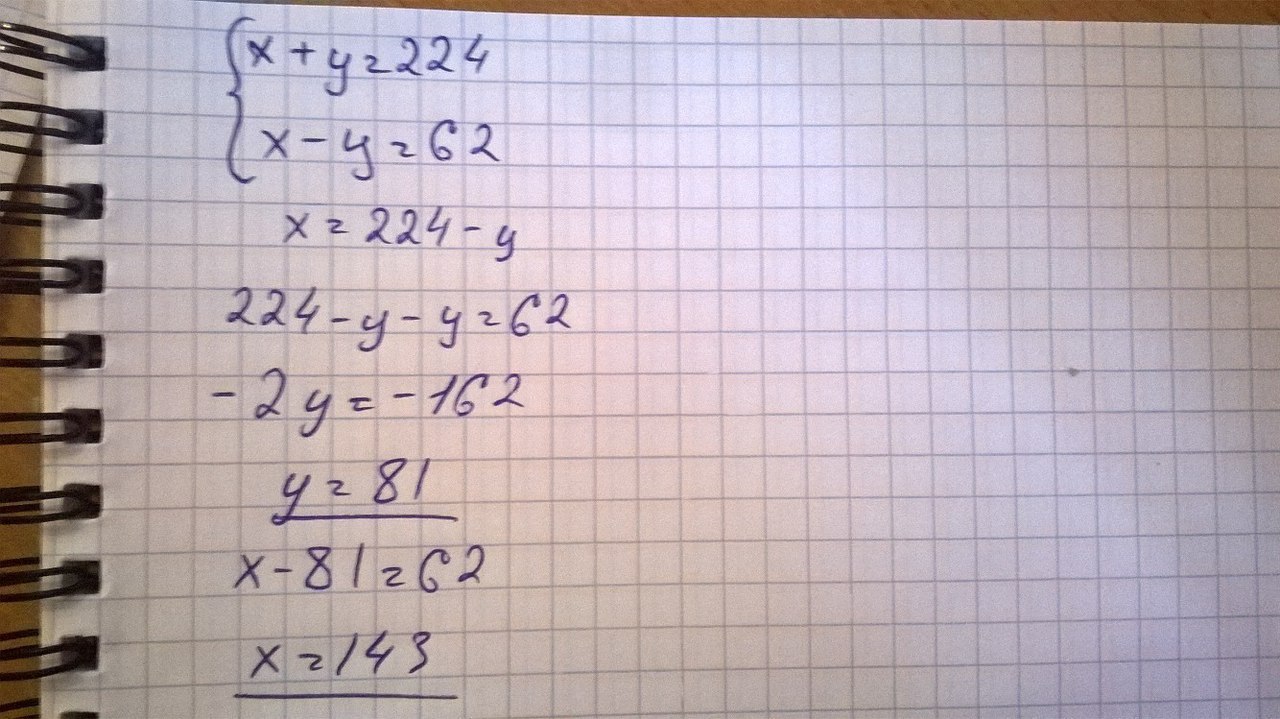 x + y = 224
x - y = 62
x = 224 - y
224 - y - y = 62
- 2 y = - 162
y = 81
x - 81 = 62
x = 143